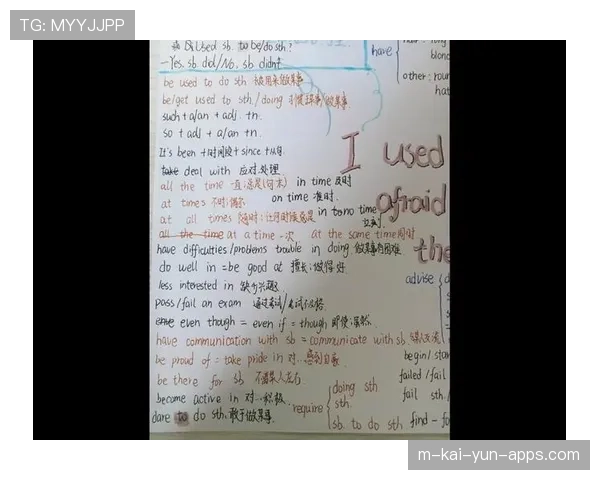 TG: MYYJJPP
Used sb. to be/do sth?
—Yes, sb did/No, sb didn't
be used to do sth 被用来做某事
be/get used to sth/doing 习惯某事/做某事
such + a/an + adj. + n.
so + adj + a/an + n.
It's been + 时间段 + since + 从句
take deal with 应对.处理
all the time 一直;总是(句末) in time 及时
at times 不时;偶尔 on time 准时.
at all times 随时;任何时候总是 in to no time
立刻
all the time at a time 一次 at the same time 同时
have difficulties/problems trouble in doing 做某事有困难
do well in = be good at 擅长;做得好
less interested in 缺少兴趣
pass/fail an exam 通过考试/考试不及格
even though = even if = though 即使;虽然
have communication with sb = communicate with sb 与某人交流
be proud of = take pride in 对...感到自豪
be there for sb 不离某人左右
become active in 对...积极
dare to do sth. 敢于做某事
require
doing sth
sth.
sb. to do sth
have
long
blond
other: roun
hat
I used
afraid
the
advise
begin/star
failed/fail
fail sth/
find - fo
m-kai-yun-apps.com